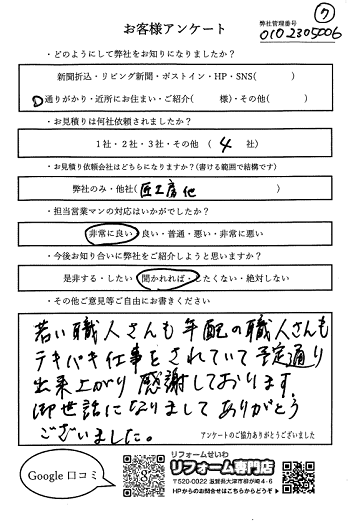 ⑦
お客様アンケート
弊社管理番号
0102305006
・どのようにして弊社をお知りになりましたか?
新聞折込・リビング新聞・ポストイン・HP・SNS( )
通りがかり・近所にお住まい・ご紹介( 様)・その他( )
・お見積りは何社依頼されましたか?
1社・2社・3社・その他 ( 4 社)
・お見積り依頼会社はどちらになりますか?(書ける範囲で結構です)
弊社のみ・他社( 匠工房他 )
・担当営業マンの対応はいかがでしたか?
非常に良い・良い・普通・悪い・非常に悪い
・今後お知り合いに弊社をご紹介しようと思いますか?
是非する・したい・聞かれれば・したくない・絶対しない
・その他ご意見等ご自由にお書きください
若い職人さんも年配の職人さんも
テキパキ仕事をされていて予定通り
出来上がり感謝しております。
御世話になりましてありがとう
ございました。
アンケートのご協力ありがとうございました
Google 口コミ
リフォームせいわ
リフォーム専門店
〒520-0022 滋賀県大津市柳が崎4-6
HPからのお問合せはこちらからどうぞ